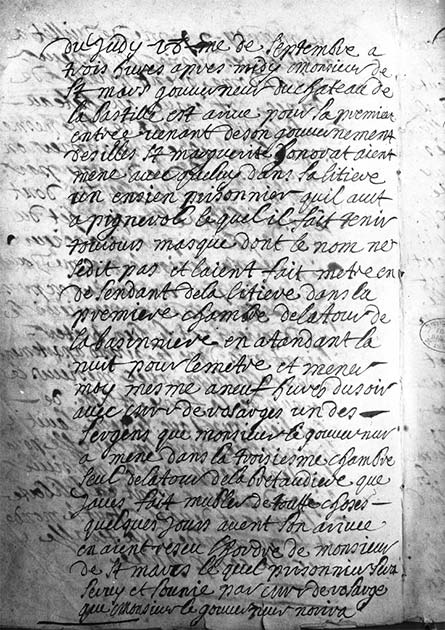 du Judy 18me de Septembre a
trois hures apres midy monsieur de
St mars gouverneur du chateau de
la bastille est arive pour sa premiere
entree venant de son gouvernement
des illes St marguerite honorat aient
mene avec queluy dans sa litiere
un ensien prisonnier quil avet
a pignerol lequel il fait tenir
touiours masque dont le nom ne
se dit pas et laient fait metre en
desendant de la litiere dans la
premiere chambre de la tour de
la basinniere en atandant la
nuit pour le metre et mener
moy mesme a neuf hures du soir
avec de rosarges un des
sergens que monsieur le gouverneur
a mene dans la troisiesme chambre
seul de la tour de la bretaudiere que
javes fait mubler de choses
quelques jours avent son arivee
en aient reseu lhordre de monsieur
de St mars lequel prisonnier sera
servy et sounie par de rosarge
que monsieur le gouverneur norira